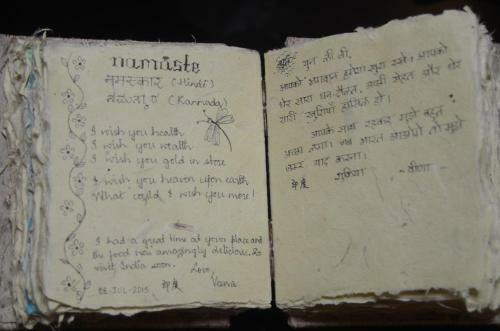 namaste
नमस्कार (Hindi)
ನಮಸ್ಕಾರ (Kannada)
I wish you health
I wish you wealth
I wish you gold in store
I wish you heaven upon earth
What could I wish you more!
I had a great time at your place and
the food was amazingly delicious. Do
visit India soon.
Love
Vana
02-JUL-2015 印度
प्रिय युन ली जी,
आपको भगवान हमेशा खुश रखे। आपको
ढेर सारा धन-दौलत, अच्छी सेहत और ढेर
सारी खुशियाँ हासिल हो।
आपके साथ रहकर मुझे बहुत
अच्छा लगा। जब भारत आओगे तो मुझे
जरूर याद करना।
印度 शुक्रिया - वीणा -